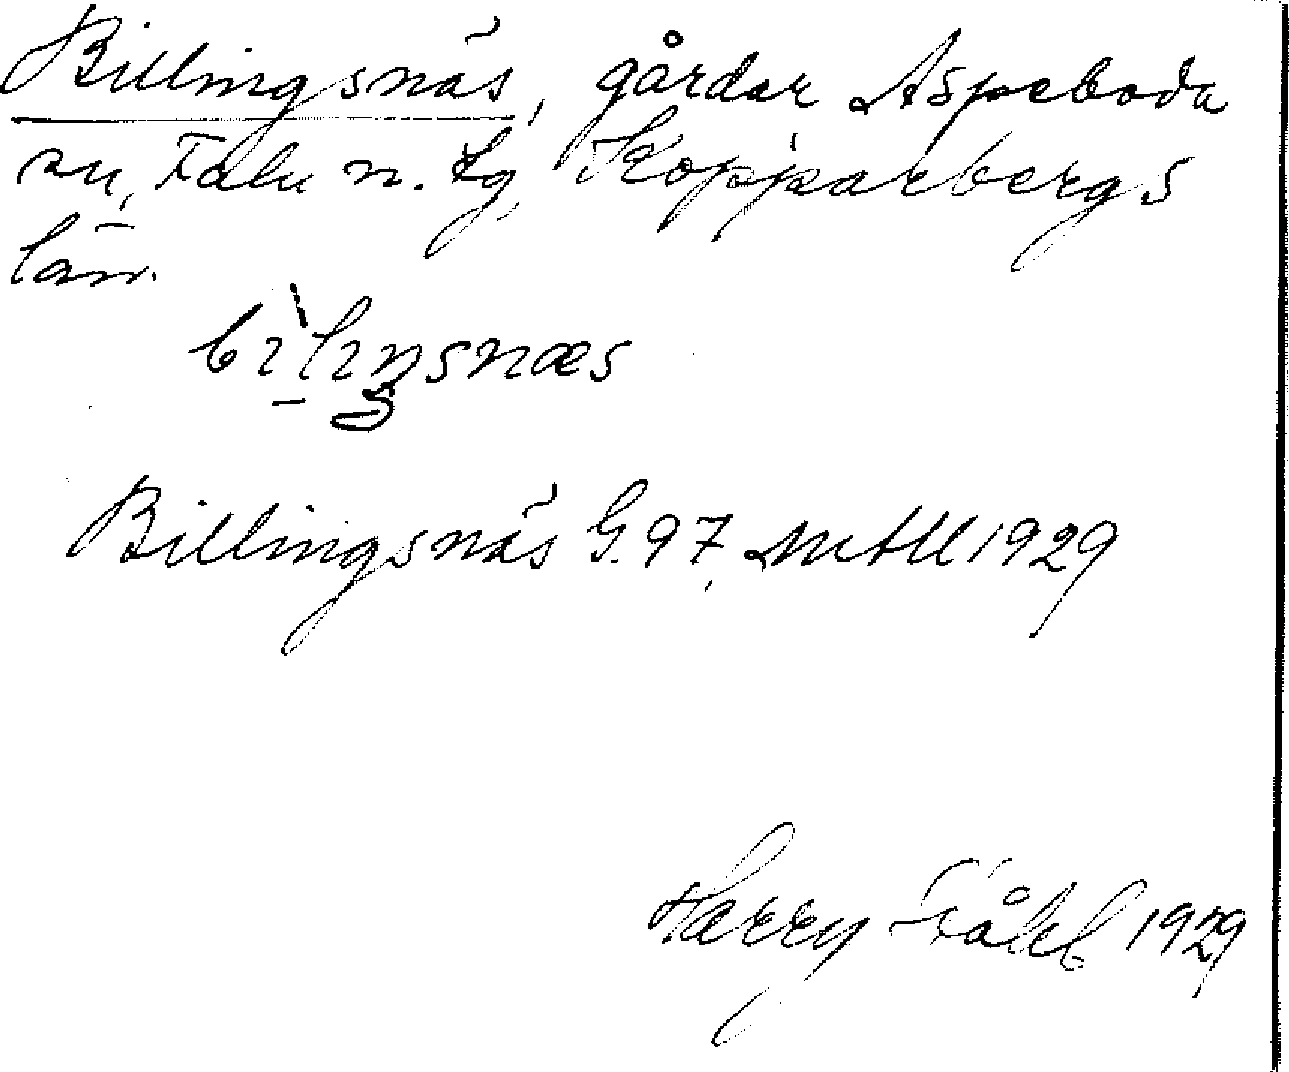 Billingsnäs, gårdar Aspeboda
sn, Falu n. tg, Kopparbergs
län.
bìliŋsnæs
Billingsnäs G. 97, MtLl 1929
Harry Ståhl 1929